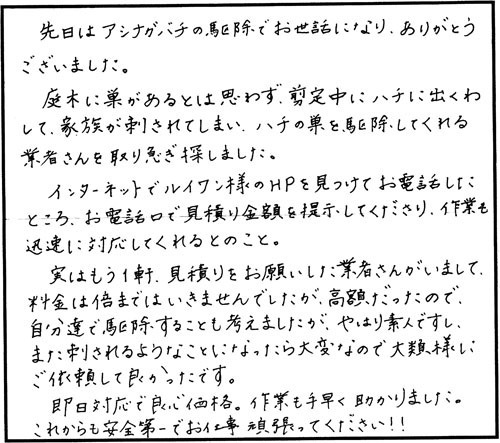 先日はアシナガバチの駆除でお世話になり、ありがとう
ございました。
庭木に巣があるとは思わず、剪定中にハチに出くわ
して、家族が刺されてしまい、ハチの巣を駆除してくれる
業者さんを取り急ぎ探しました。
インターネットでルイワン様のHPを見つけてお電話した
ところ、お電話口で見積り金額を提示してくださり、作業も
迅速に対応してくれるとのこと。
実はもう1軒、見積りをお願いした業者さんがいまして、
料金は倍まではいきませんでしたが、高額だったので、
自分達で駆除することも考えましたが、やはり素人ですし、
また刺されるようなことになったら大変なので大類様に
ご依頼して良かったです。
即日対応で良心価格。作業も手早く助かりました。
これからも安全第一でお仕事頑張ってください!!